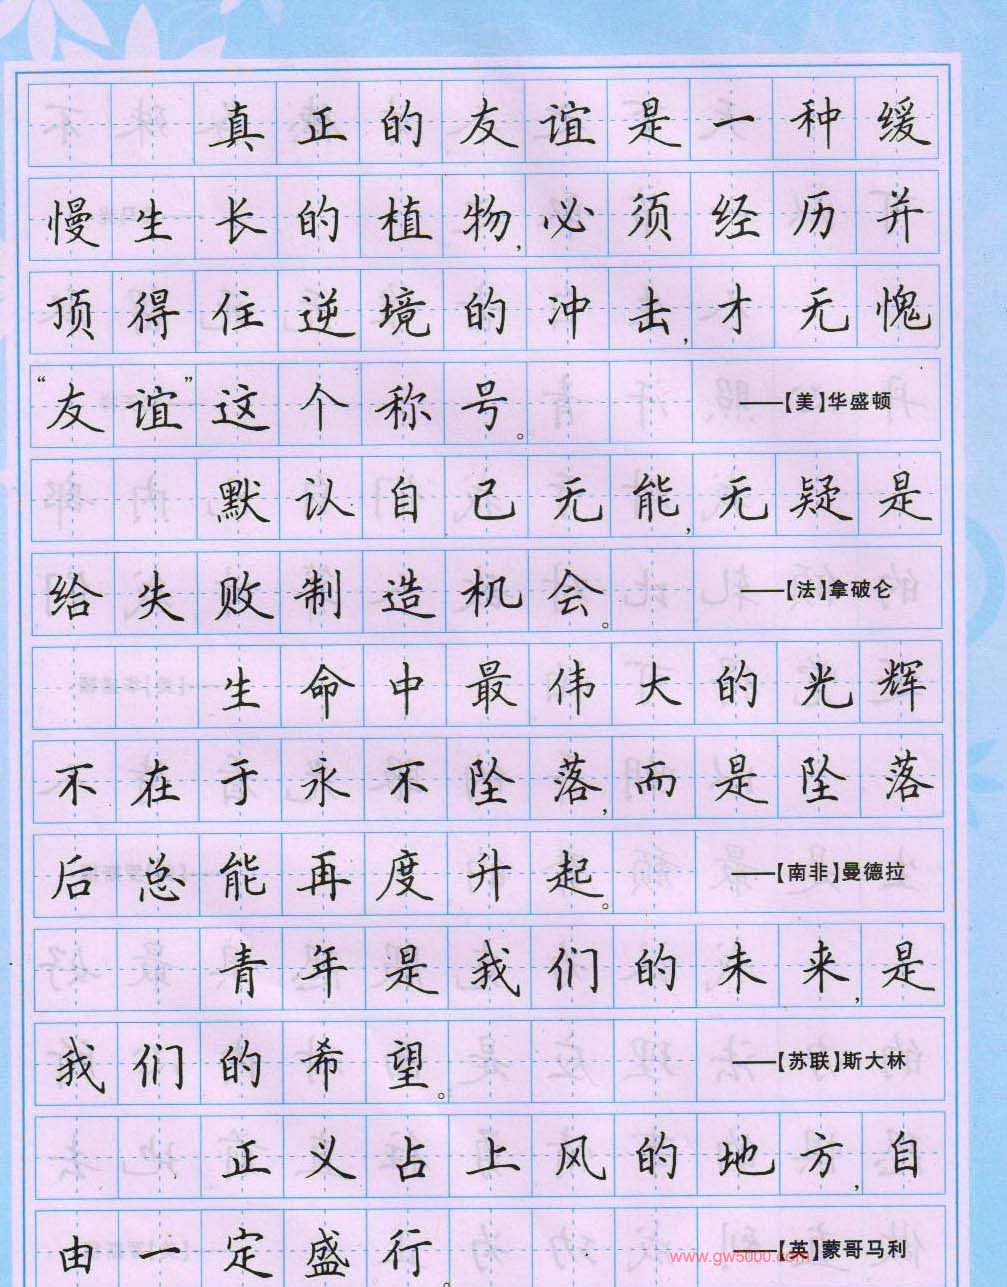 真正的友谊是一种缓
慢生长的植物,必须经历并
顶得住逆境的冲击,才无愧
“友谊”这个称号。 ——【美】华盛顿
默认自己无能,无疑是
给失败制造机会。 ——【法】拿破仑
生命中最伟大的光辉
不在于永不坠落,而是坠落
后总能再度升起。 ——【南非】曼德拉
青年是我们的未来,是
我们的希望。 ——【苏联】斯大林
正义占上风的地方,自
由一定盛行。 ——【英】蒙哥马利
www.gw5000.com